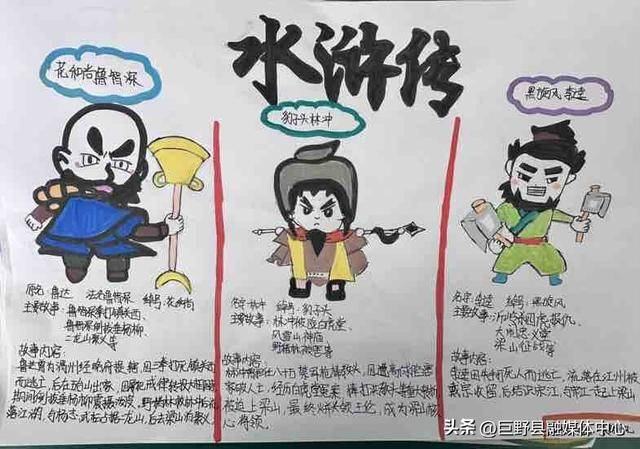 水浒传
花和尚鲁智深
原名:鲁达 法名:鲁智深 绰号:花和尚
主要故事:鲁智深拳打镇关西、
鲁智深倒拔垂杨柳、
二龙山聚义等
故事内容:
鲁达曾为渭州经略府提辖,因三拳打死镇关西
而逃亡,后在五山出家,因
期间倒拔垂杨柳震慑泼皮,野猪林救林冲后流
落江湖,与杨志、武松占据二龙山,后去梁山聚义
豹子头林冲
名字:林冲 绰号:豹子头
主要故事:林冲误入白虎堂、
风雪山神庙
野猪林被害等
故事内容:
林冲原任八十万禁军枪棒教头,因遭高俅迫害
家破人亡,经历白虎堂冤案
被迫上梁山,最终火并王伦,成为梁山核
心将领。
黑旋风李逵
名字:李逵 绰号:黑旋风
主要故事:沂岭杀四虎报仇、
大闹忠义堂
梁山征战等
故事内容:
李逵因失手打死人而逃亡,流落在江州被
戴宗收留,后结识宋江,与宋江一起上梁山
头条 @巨野县融媒体中心